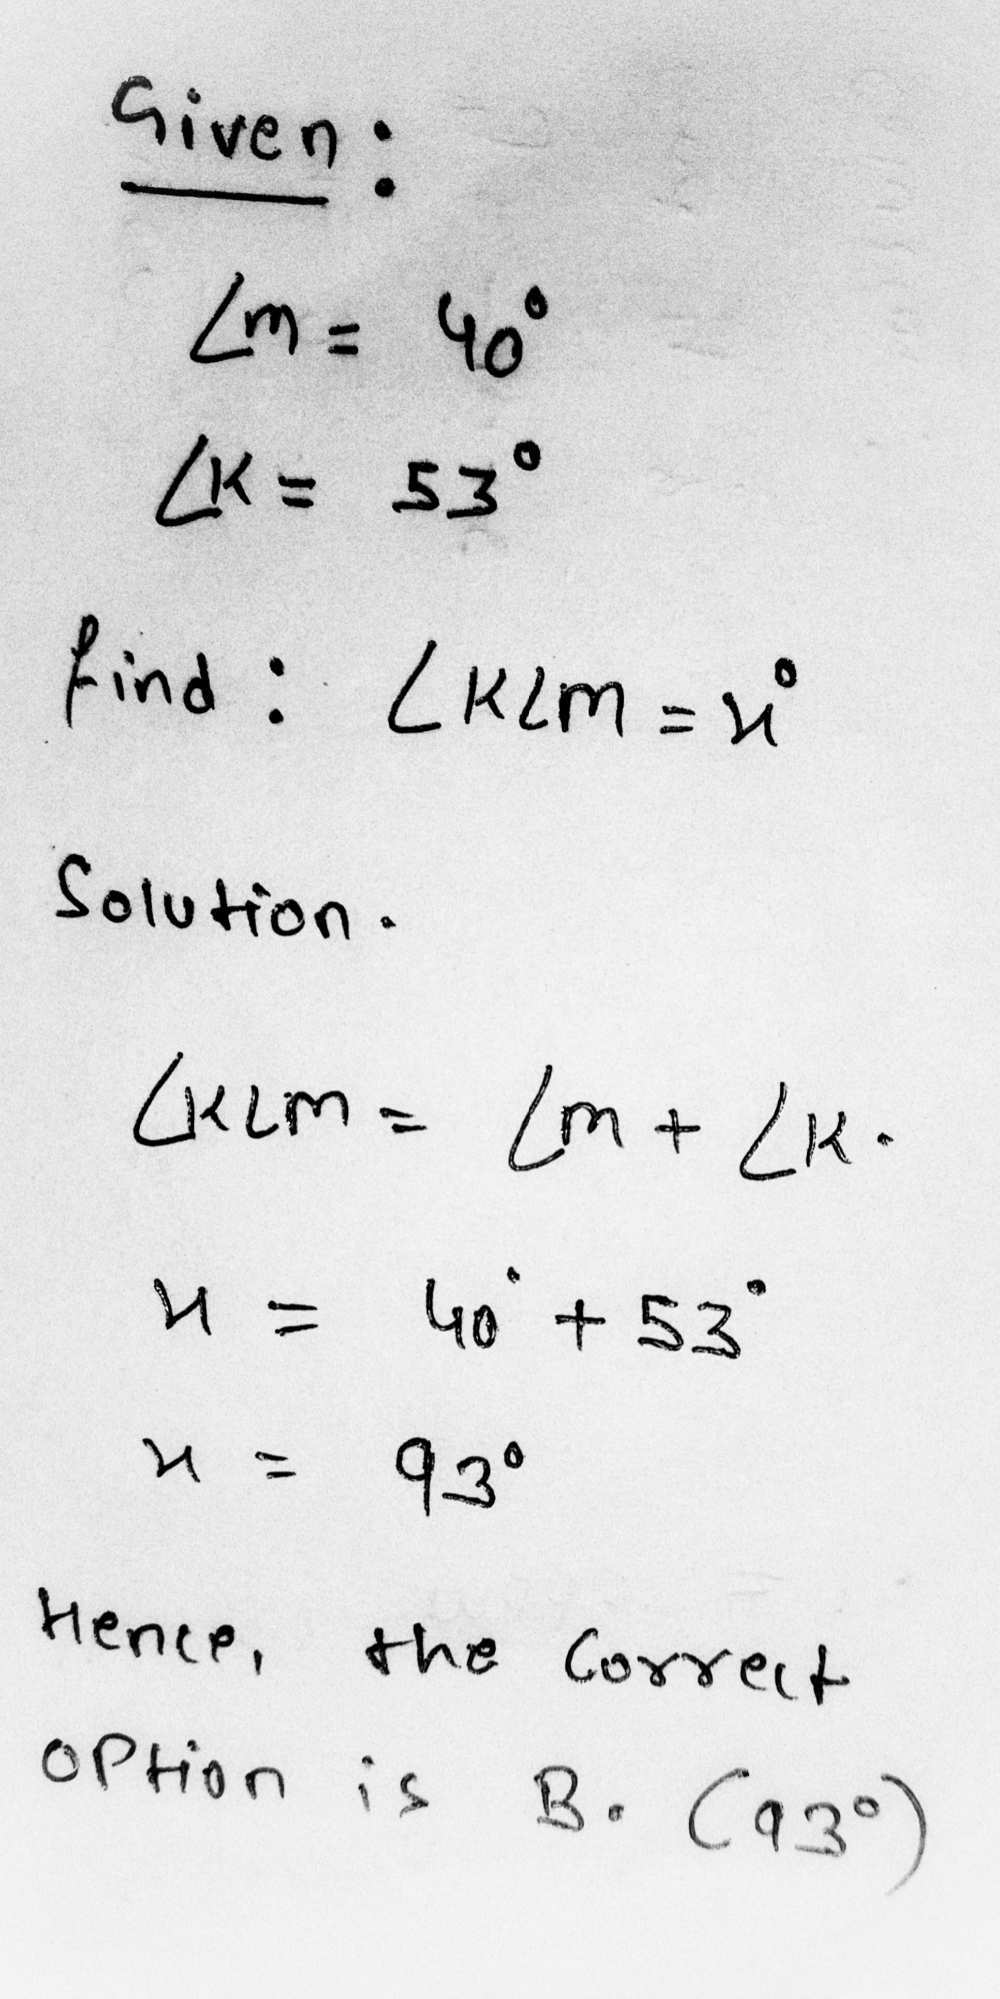 Given:
∠m = 40°
∠K = 53°
find: ∠KLM = x°
Solution.
∠KLM = ∠m + ∠K.
x = 40° + 53°
x = 93°
Hence, the correct
option is B. (93°)